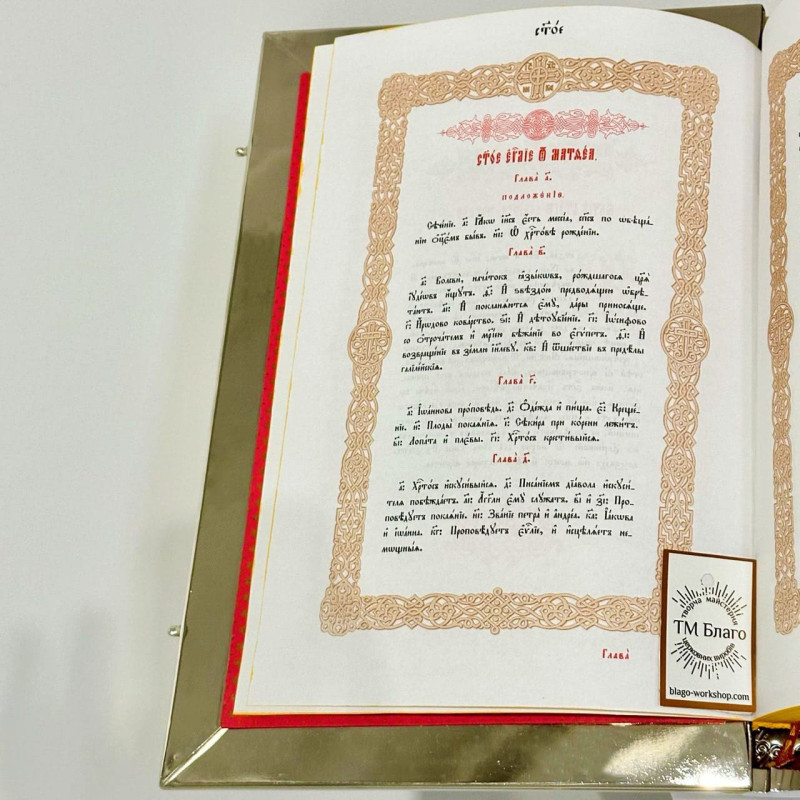 ст҃ое
ст҃ое еѵ҃лїе ѿ матѳеа.
Глава̀ а҃.
подложе́нїѧ.
Сѣче́нїе. а҃: Ꙗ҆́кѡ і҆и҃съ є҆́сть мессі́а, сп҃съ по ѡ҆бѣща́-
нїи ѻ҆ц҃є́мъ бы́въ. и҃і: Ѡ҆ хрⷭ҇то́вѣ рожде́нїи.
Глава̀ в҃.
а҃: Волсвѝ, нача́токъ ꙗ҆зы́кѡвъ, ро́ждшагосѧ цр҃ѧ̀
і҆ꙋде́ѡвъ и҆́щꙋтъ. д҃: И҆ ѕвѣздо́ю предводѧ́щею ѡ҆брѣ-
та́ютъ. а҃і: И҆ поклонѧ́ютсѧ є҆мꙋ̀, да́ры приносѧ́ще.
г҃: И҆́рѡдово кова́рство. ѕ҃і: И҆ дѣтоꙋбїе́нїе. г҃і: І҆ѡ́сифово
со ѻ҆троча́темъ и҆ мр҃і́ею бѣжа́нїе во є҆гѵ́петъ. д҃і: И҆
возвраще́нїе въ зе́млю і҆и҃левꙋ. к҃в: И҆ ѿше́ствїе въ предѣ́лы
галїле́йскїѧ.
Глава̀ г҃.
а҃: І҆ѡа́ннова про́повѣдь. д҃: Ѻ҆де́жда и҆ пи́ща. є҃: Креще́-
нїе. и҃: Плоды̀ покаѧ́нїѧ. і҃: Сѣки́ра при ко́рени лежи́тъ.
в҃і: Лопа́та и҆ пле́вы. г҃і: Хрⷭ҇то́съ крести́выйсѧ.
Глава̀ д҃.
а҃: Хрⷭ҇то́съ и҆скꙋси́выйсѧ. д҃: Писа́нїемъ дїа́вола и҆скꙋси́-
телѧ побѣжда́етъ. а҃і: А҆́гг҃ли є҆мꙋ̀ слꙋ́жатъ. в҃і и҆ з҃і: Про-
повѣ́дꙋетъ покаѧ́нїе. и҃і: Зва́нїе петра̀ и҆ а҆ндре́а. к҃а: І҆а́кѡва
и҆ і҆ѡа́нна. к҃г: Проповѣ́дꙋетъ є҆ѵⷢ҇лїе, и҆ и҆сцѣлѧ́етъ не-
мѡщны́ѧ.
Глава̀
творча майстерня
ТМ Благо
церковних виробів
blago-workshop.com